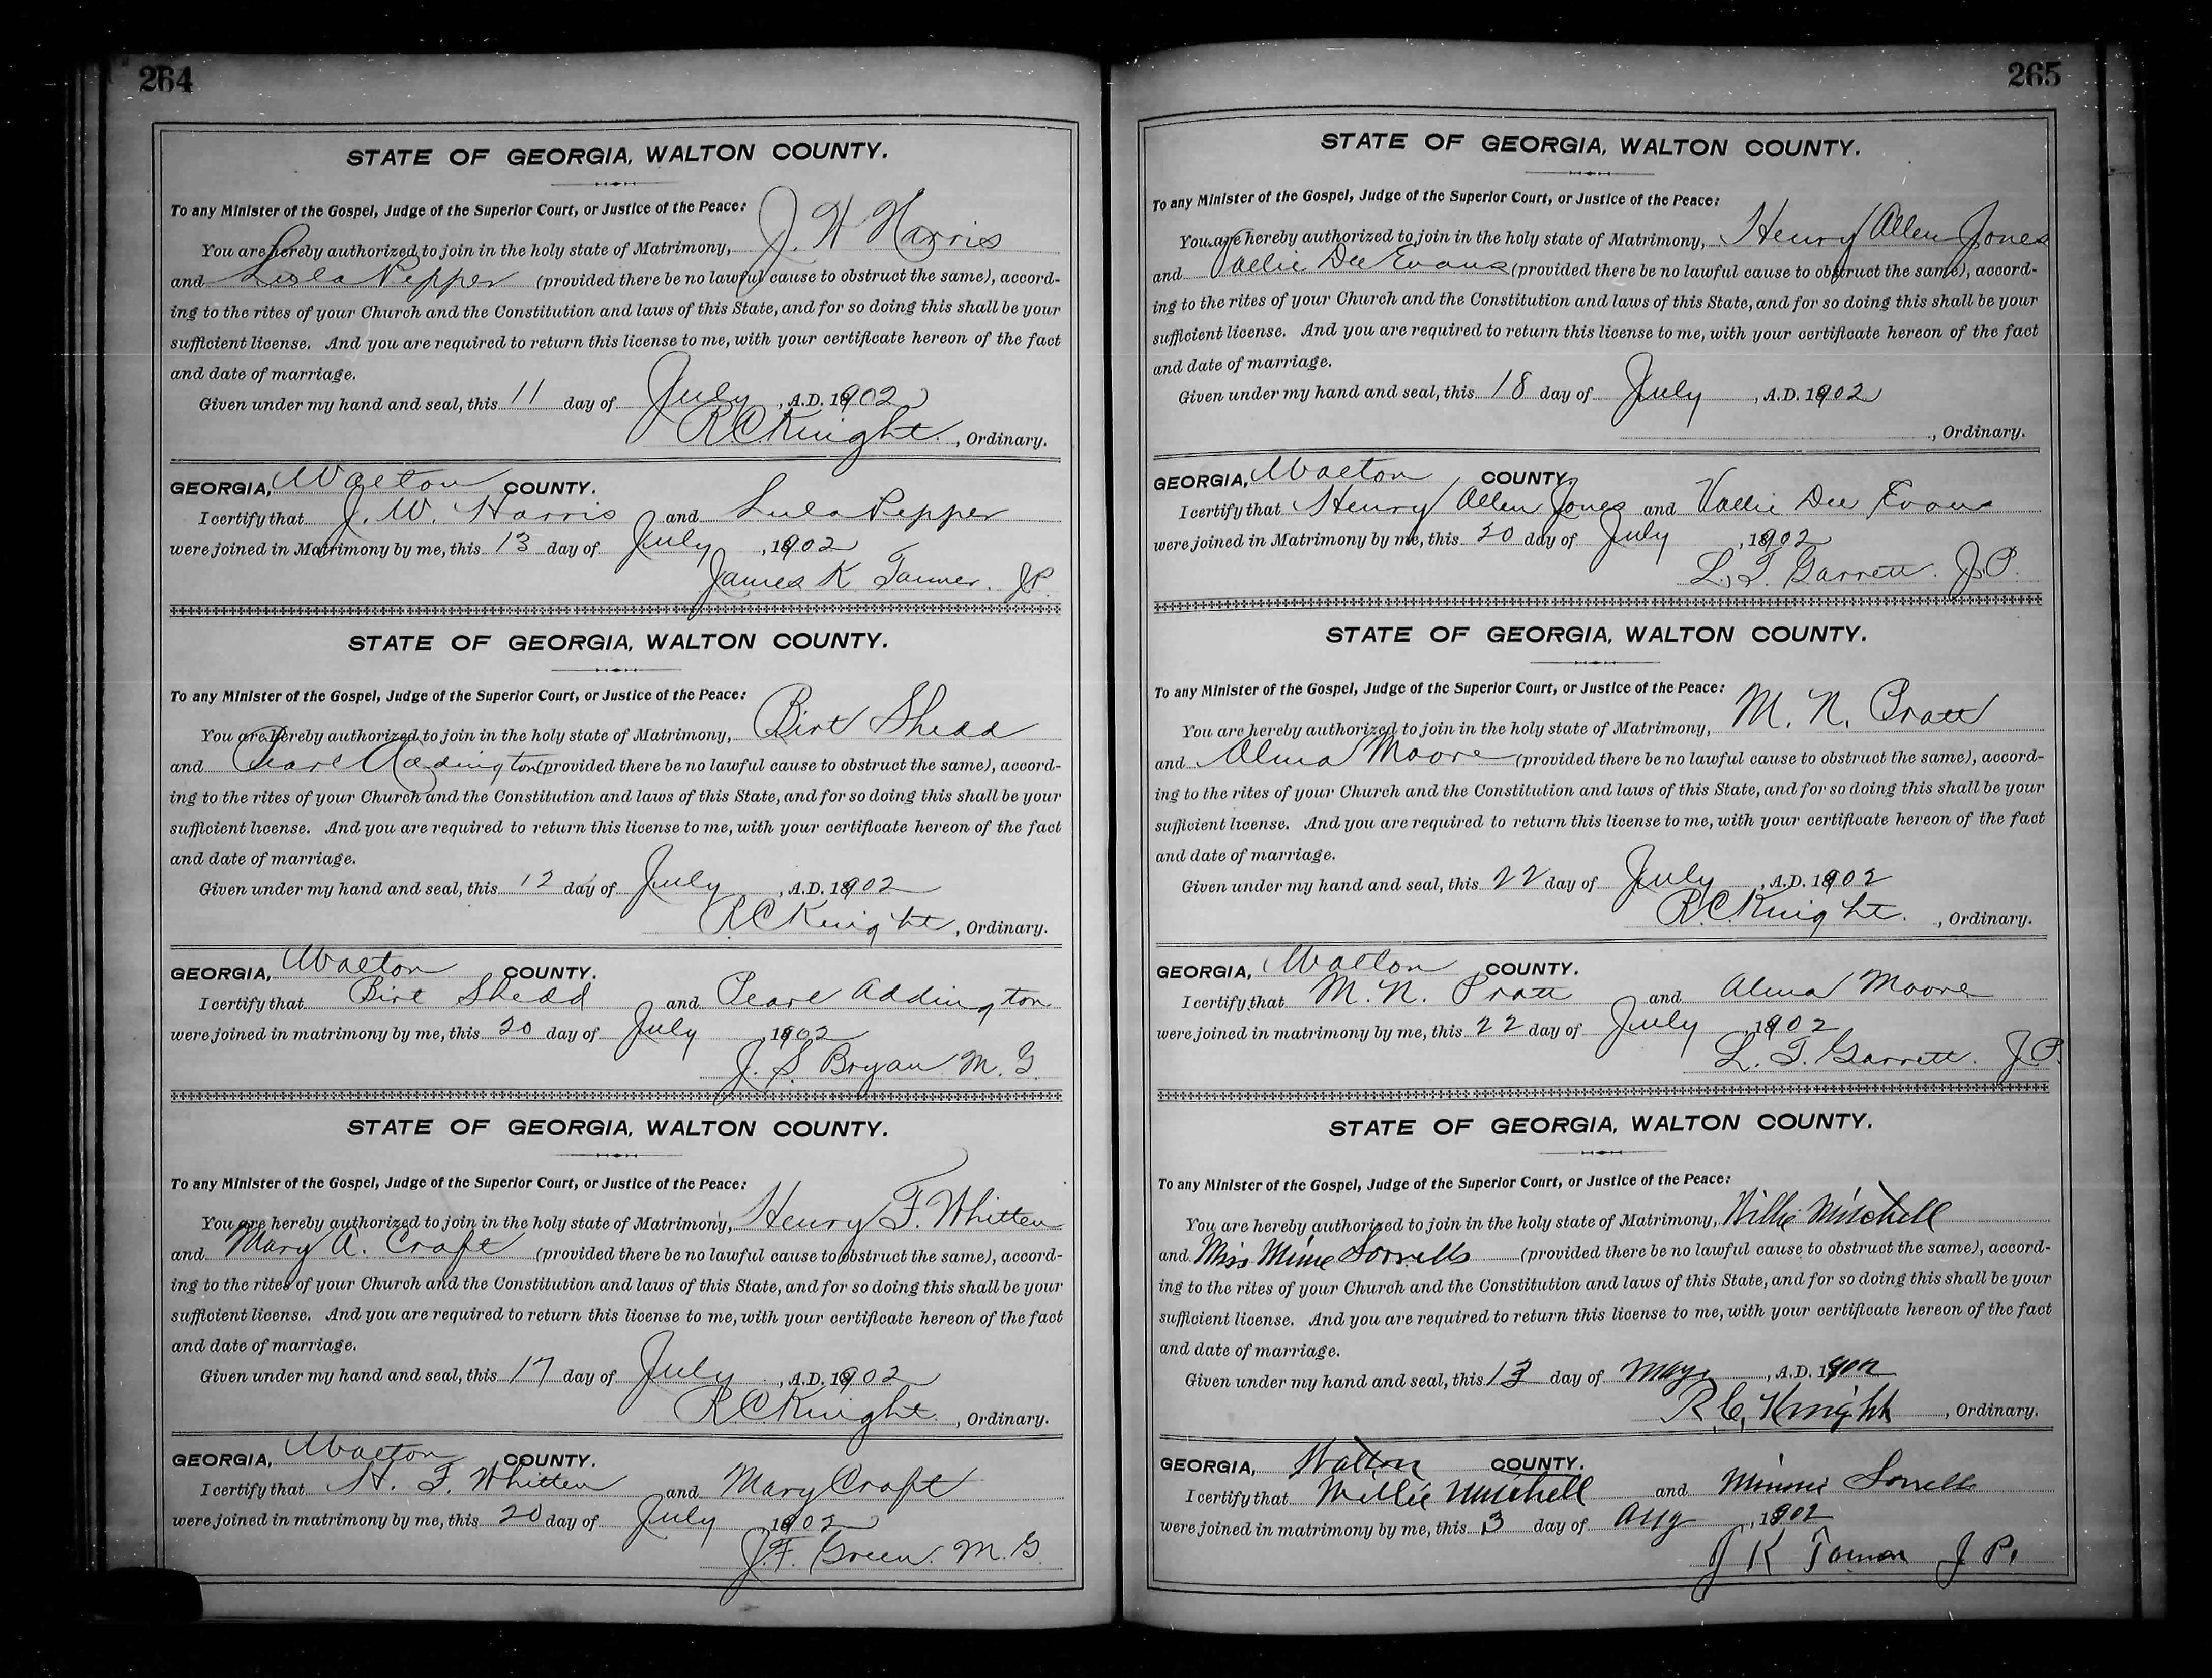 264
STATE OF GEORGIA, WALTON COUNTY.
To any Minister of the Gospel, Judge of the Superior Court, or Justice of the Peace:
You are hereby authorized to join in the holy state of Matrimony, J. W Harris
and Lula Pepper (provided there be no lawful cause to obstruct the same), accord-
ing to the rites of your Church and the Constitution and laws of this State, and for so doing this shall be your
sufficient license. And you are required to return this license to me, with your certificate hereon of the fact
and date of marriage.
Given under my hand and seal, this 11 day of July, A.D. 1902
R C Knight, Ordinary.
GEORGIA, Walton COUNTY.
I certify that J. W. Harris and Lula Pepper
were joined in Matrimony by me, this 13 day of July, 1902
James K Tanner. JP.
STATE OF GEORGIA, WALTON COUNTY.
To any Minister of the Gospel, Judge of the Superior Court, or Justice of the Peace:
You are hereby authorized to join in the holy state of Matrimony, Birt Shedd
and Pearl Addington (provided there be no lawful cause to obstruct the same), accord-
ing to the rites of your Church and the Constitution and laws of this State, and for so doing this shall be your
sufficient license. And you are required to return this license to me, with your certificate hereon of the fact
and date of marriage.
Given under my hand and seal, this 12 day of July, A.D. 1902
R C Knight, Ordinary.
GEORGIA, Walton COUNTY.
I certify that Birt Shedd and Pearl Addington
were joined in matrimony by me, this 20 day of July, 1902
J. S. Bryan M. G.
STATE OF GEORGIA, WALTON COUNTY.
To any Minister of the Gospel, Judge of the Superior Court, or Justice of the Peace:
You are hereby authorized to join in the holy state of Matrimony, Henry F. Whitten
and Mary A. Croft (provided there be no lawful cause to obstruct the same), accord-
ing to the rites of your Church and the Constitution and laws of this State, and for so doing this shall be your
sufficient license. And you are required to return this license to me, with your certificate hereon of the fact
and date of marriage.
Given under my hand and seal, this 17 day of July, A.D. 1902
R. C Knight, Ordinary.
GEORGIA, Walton COUNTY.
I certify that H. F. Whitten and Mary Croft
were joined in matrimony by me, this 20 day of July, 1902
J. F. Green. M. G.
265
STATE OF GEORGIA, WALTON COUNTY.
To any Minister of the Gospel, Judge of the Superior Court, or Justice of the Peace:
You are hereby authorized to join in the holy state of Matrimony, Henry Allen Jones
and Vallie Dee Evans (provided there be no lawful cause to obstruct the same), accord-
ing to the rites of your Church and the Constitution and laws of this State, and for so doing this shall be your
sufficient license. And you are required to return this license to me, with your certificate hereon of the fact
and date of marriage.
Given under my hand and seal, this 18 day of July, A.D. 1902
, Ordinary.
GEORGIA, Walton COUNTY.
I certify that Henry Allen Jones and Vallie Dee Evans
were joined in Matrimony by me, this 20 day of July, 1902
L. T. Garrett. J.P.
STATE OF GEORGIA, WALTON COUNTY.
To any Minister of the Gospel, Judge of the Superior Court, or Justice of the Peace:
You are hereby authorized to join in the holy state of Matrimony, M. N. Pratt
and Alma Moore (provided there be no lawful cause to obstruct the same), accord-
ing to the rites of your Church and the Constitution and laws of this State, and for so doing this shall be your
sufficient license. And you are required to return this license to me, with your certificate hereon of the fact
and date of marriage.
Given under my hand and seal, this 22 day of July, A.D. 1902
R. C. Knight., Ordinary.
GEORGIA, Walton COUNTY.
I certify that M. N. Pratt and Alma Moore
were joined in matrimony by me, this 22 day of July, 1902
L. T. Garrett. J.P.
STATE OF GEORGIA, WALTON COUNTY.
To any Minister of the Gospel, Judge of the Superior Court, or Justice of the Peace:
You are hereby authorized to join in the holy state of Matrimony, Willie Mitchell
and Miss Sorrells (provided there be no lawful cause to obstruct the same), accord-
ing to the rites of your Church and the Constitution and laws of this State, and for so doing this shall be your
sufficient license. And you are required to return this license to me, with your certificate hereon of the fact
and date of marriage.
Given under my hand and seal, this 13 day of May, A.D. 1902
R. C. Knight, Ordinary.
GEORGIA, Walton COUNTY.
I certify that Willie Mitchell and Minnie Sorrells
were joined in matrimony by me, this 3 day of Aug, 1902
J K Tanner J P.